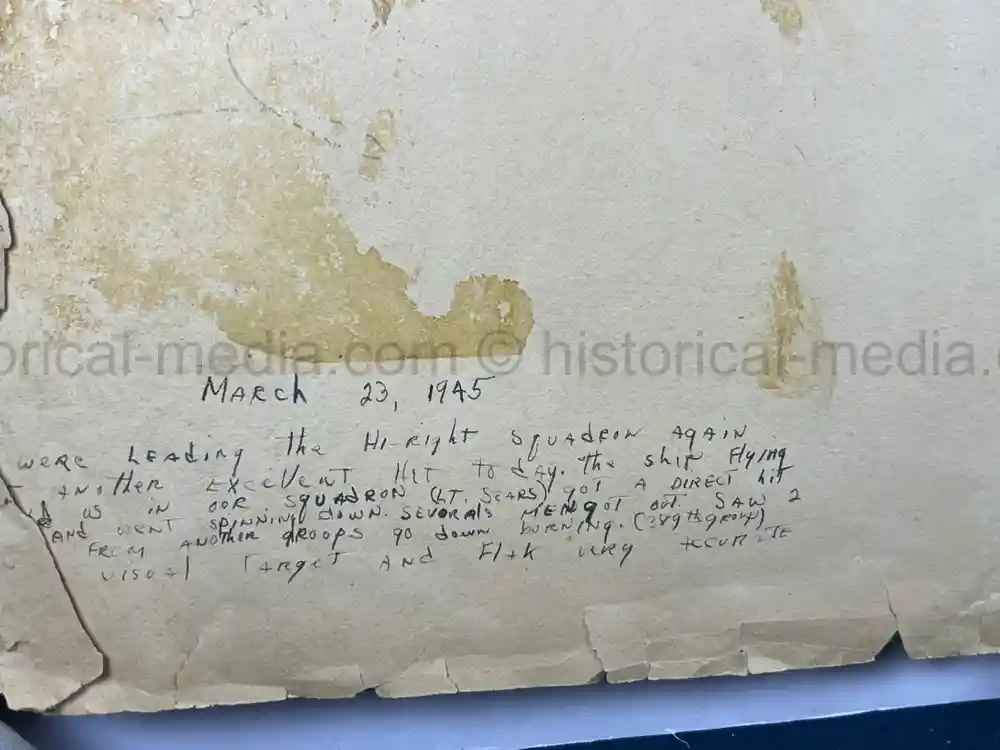 orical-media.com © historical-media.
MARCH 23, 1945
WERE LEADING the HI-RIGHT SQUADRON AGAIN
ANOTHER EXCELLENT HIT TO DAY. THE SHIP FLYING
US IN OUR SQUADRON (LT. SEARS) GOT A DIRECT HIT
AND WENT SPINNING DOWN. SEVORALS MEN GOT OUT. SAW 2
FROM ANOTHER GROOPS GO DOWN BURNING. (389th GROUP)
VISUAL TARGET AND FLAK VERY ACCURATE